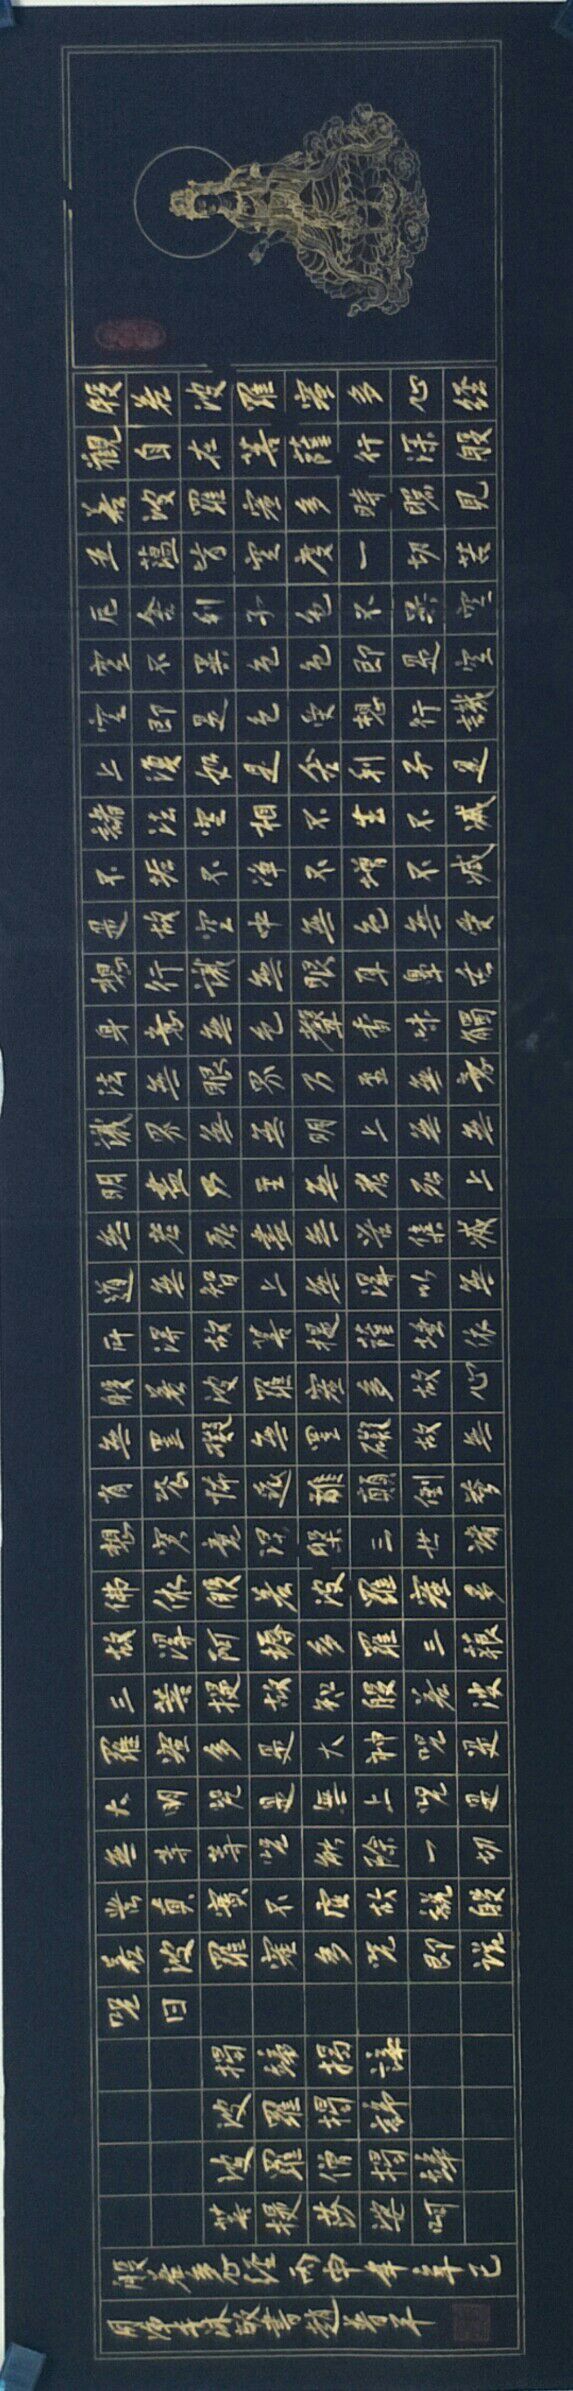 般若波羅蜜多心経
觀自在菩薩行深般
若波羅蜜多時照見
五蘊皆空度一切苦
厄舍利子色不異空
空不異色色即是空
空即是色受想行識
亦復如是舍利子是
諸法空相不生不滅
不垢不淨不增不減
是故空中無色無受
想行識無眼耳鼻舌
身意無色聲香味觸
法無眼界乃至無意
識界無無明亦無無
明盡乃至無老死亦
無老死盡無苦集滅
道無智亦無得以無
所得故菩提薩埵依
般若波羅蜜多故心
無罣礙無罣礙故無
有恐怖遠離顛倒夢
想究竟涅槃三世諸
佛依般若波羅蜜多
故得阿耨多羅三藐
三菩提故知般若波
羅蜜多是大神咒是
大明咒是無上咒是
無等等咒能除一切
苦真實不虛故說般
若波羅蜜多咒即說
咒曰
揭諦揭諦
波羅揭諦
波羅僧揭諦
菩提莎婆呵
般若多心経丙申年辛巳
月敬書